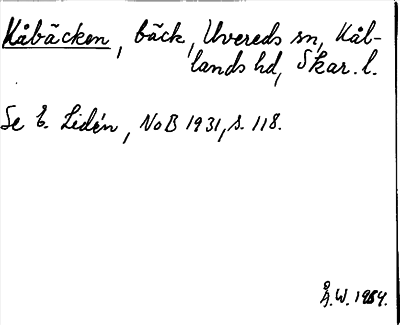 Kåbäcken, bäck, Uvereds sn, Kål-
lands hd, Skar. l.
Se E. Lidén, NoB 1931, s. 118.
Å.W. 1984.